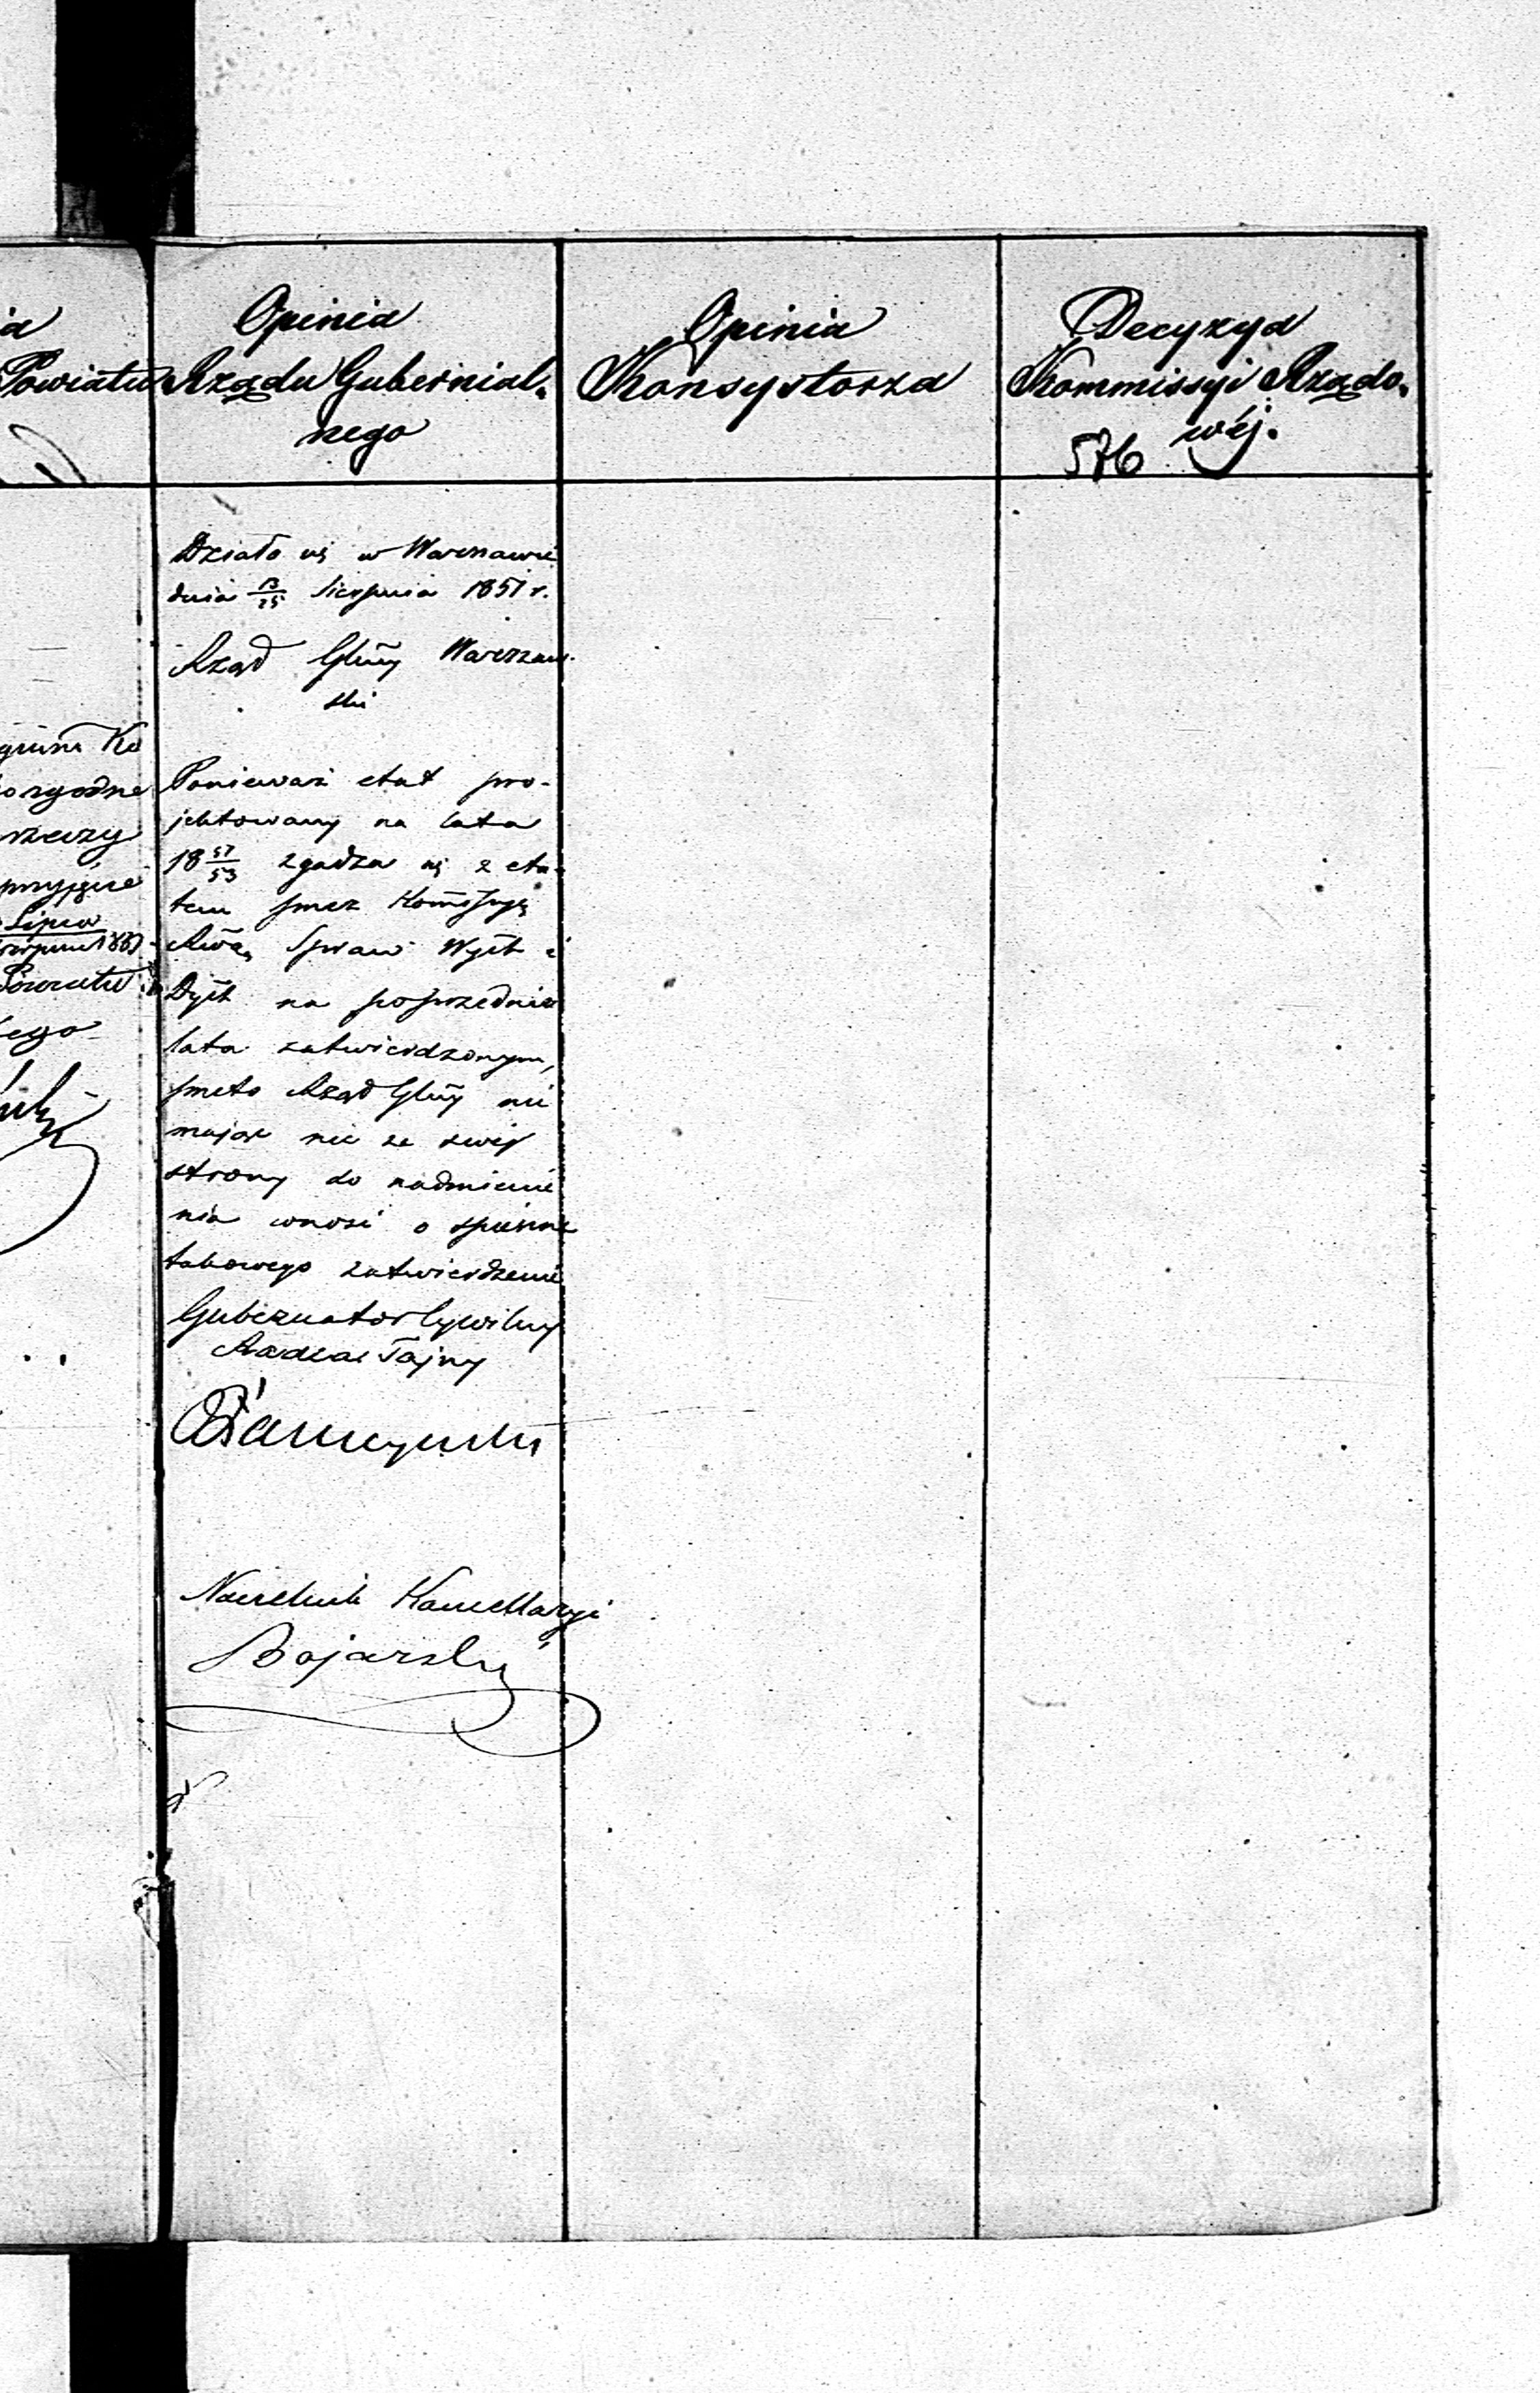 ia
Powiatu
Opinia
Rządu Gubernial-
nego
Opinia
Konsystorza
Decyzya
Kommissyi Rządo-
wéj.
576
Ko
rzeczy
przyjęcie
Lipca
Powiatu
ego
Działo się w Warszawie
dnia 13/25 Sierpnia 1851 r.
Rząd Glny Warszaw-
ski
Ponieważ etat pro-
jektowany na lata
18 51/53 zgadza się z eta-
tem przez Kommissyę
Rwą Spraw Wgłt i
Dgłt na poprzednie
lata zatwierdzonym,
przeto Rząd Glny nie
mając nic ze swéj
strony do nadmienie
nia wnosi o spieszne
takowego zatwierdzenie
Gubernator Cywilny
Radca Tajny
Naczelnik Kancellaryi
Bojarski